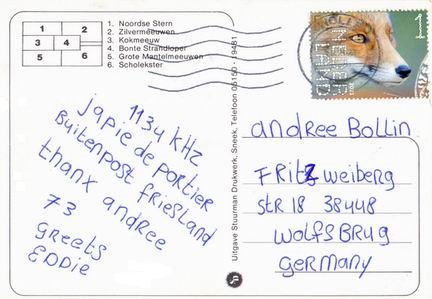 1 2
3 4
5 6
1. Noordse Stern
2. Zilvermeeuwen
3. Kokmeeuw
4. Bonte Strandloper
5. Grote Mantelmeeuwen
6. Scholekster
1134 kHz
japie de portier
Buitenpost friesland
thanx andree
73
Greets
EDDie
Uitgave Stuurman Drukwerk, Sneek, Telefoon 05150 - 19481
1
NEDER
LAND
andree Bollin
FRitz weiberg
stR 18 38448
wolfsBRug
geRmany